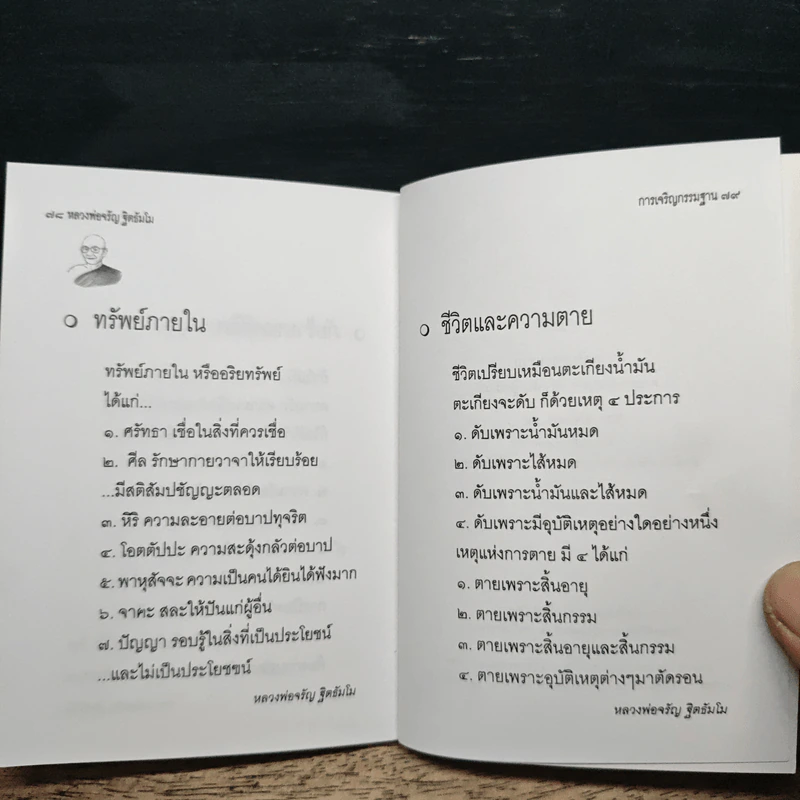 ๗๘ หลวงพ่อจรัญ ฐิตธัมโม
ทรัพย์ภายใน
ทรัพย์ภายใน หรืออริยทรัพย์
ได้แก่...
๑. ศรัทธา เชื่อในสิ่งที่ควรเชื่อ
๒. ศีล รักษากายวาจาให้เรียบร้อย
...มีสติสัมปชัญญะตลอด
๓. หิริ ความละอายต่อบาปทุจริต
๔. โอตตัปปะ ความสะดุ้งกลัวต่อบาป
๕. พาหุสัจจะ ความเป็นคนได้ยินได้ฟังมาก
๖. จาคะ สละให้ปันแก่ผู้อื่น
๗. ปัญญา รอบรู้ในสิ่งที่เป็นประโยชน์
...และไม่เป็นประโยชน์
หลวงพ่อจรัญ ฐิตธัมโม
การเจริญกรรมฐาน ๗๙
ชีวิตและความตาย
ชีวิตเปรียบเหมือนตะเกียงน้ำมัน
ตะเกียงจะดับ ก็ด้วยเหตุ ๔ ประการ
๑. ดับเพราะน้ำมันหมด
๒. ดับเพราะไส้หมด
๓. ดับเพราะน้ำมันและไส้หมด
๔. ดับเพราะมีอุบัติเหตุอย่างใดอย่างหนึ่ง
เหตุแห่งการตาย มี ๔ ได้แก่
๑. ตายเพราะสิ้นอายุ
๒. ตายเพราะสิ้นกรรม
๓. ตายเพราะสิ้นอายุและสิ้นกรรม
๔. ตายเพราะอุบัติเหตุต่างๆมาตัดรอน
หลวงพ่อจรัญ ฐิตธัมโม